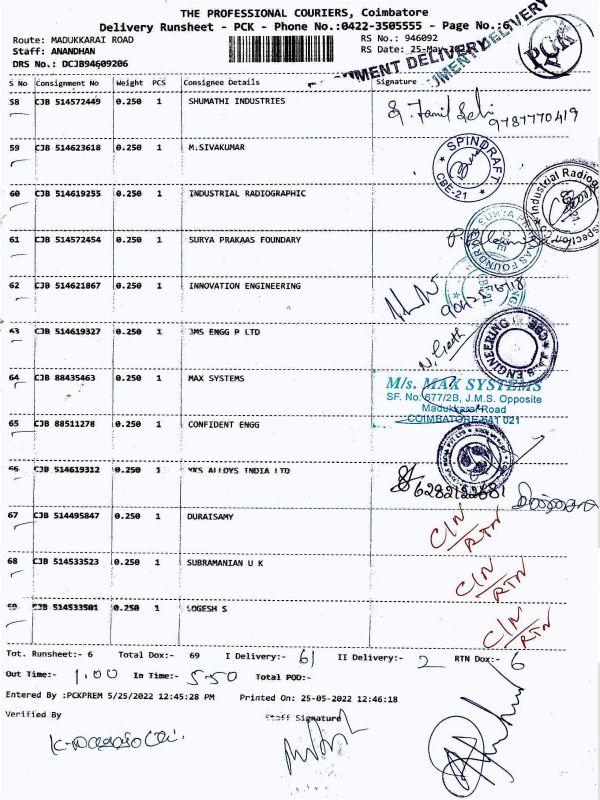 THE PROFESSIONAL COURIERS, Coimbatore
Delivery Runsheet - PCK - Phone No.:0422-3505555 - Page No.:6
Route: MADUKKARAI ROAD
RS No.: 946092
Staff: ANANDHAN
RS Date: 25-May-2022
DRS No.: DCJB94609206
PCK
S No Consignment No Weight PCS Consignee Details Signature
58 CJB 514572449 0.250 1 SHUMATHI INDUSTRIES
9787770419
59 CJB 514623618 0.250 1 M.SIVAKUMAR
SPINDRAFT
CBE-21
60 CJB 514619255 0.250 1 INDUSTRIAL RADIOGRAPHIC
61 CJB 514572454 0.250 1 SURYA PRAKAAS FOUNDARY
62 CJB 514621867 0.250 1 INNOVATION ENGINEERING
63 CJB 514619327 0.250 1 JMS ENGG P LTD
64 CJB 88435463 0.250 1 MAX SYSTEMS
M/s. MAX SYSTEMS
SF. No: 677/2B, J.M.S. Opposite
Madukkarai Road
COIMBATORE 641 021
65 CJB 88511278 0.250 1 CONFIDENT ENGG
66 CJB 514619312 0.250 1 YKS ALLOYS INDIA LTD
67 CJB 514495847 0.250 1 DURAISAMY
C/N
RTN
68 CJB 514533523 0.250 1 SUBRAMANIAN U K
C/N
RTN
69 CJB 514533501 0.250 1 LOGESH S
C/N
RTN
Tot. Runsheet:- 6 Total Dox:- 69 I Delivery:- 61 II Delivery:- 2 RTN Dox:- 6
Out Time:- 1.00 In Time:- 5.50 Total POD:-
Entered By :PCKPREM 5/25/2022 12:45:28 PM Printed On: 25-05-2022 12:46:18
Verified By Staff Signature